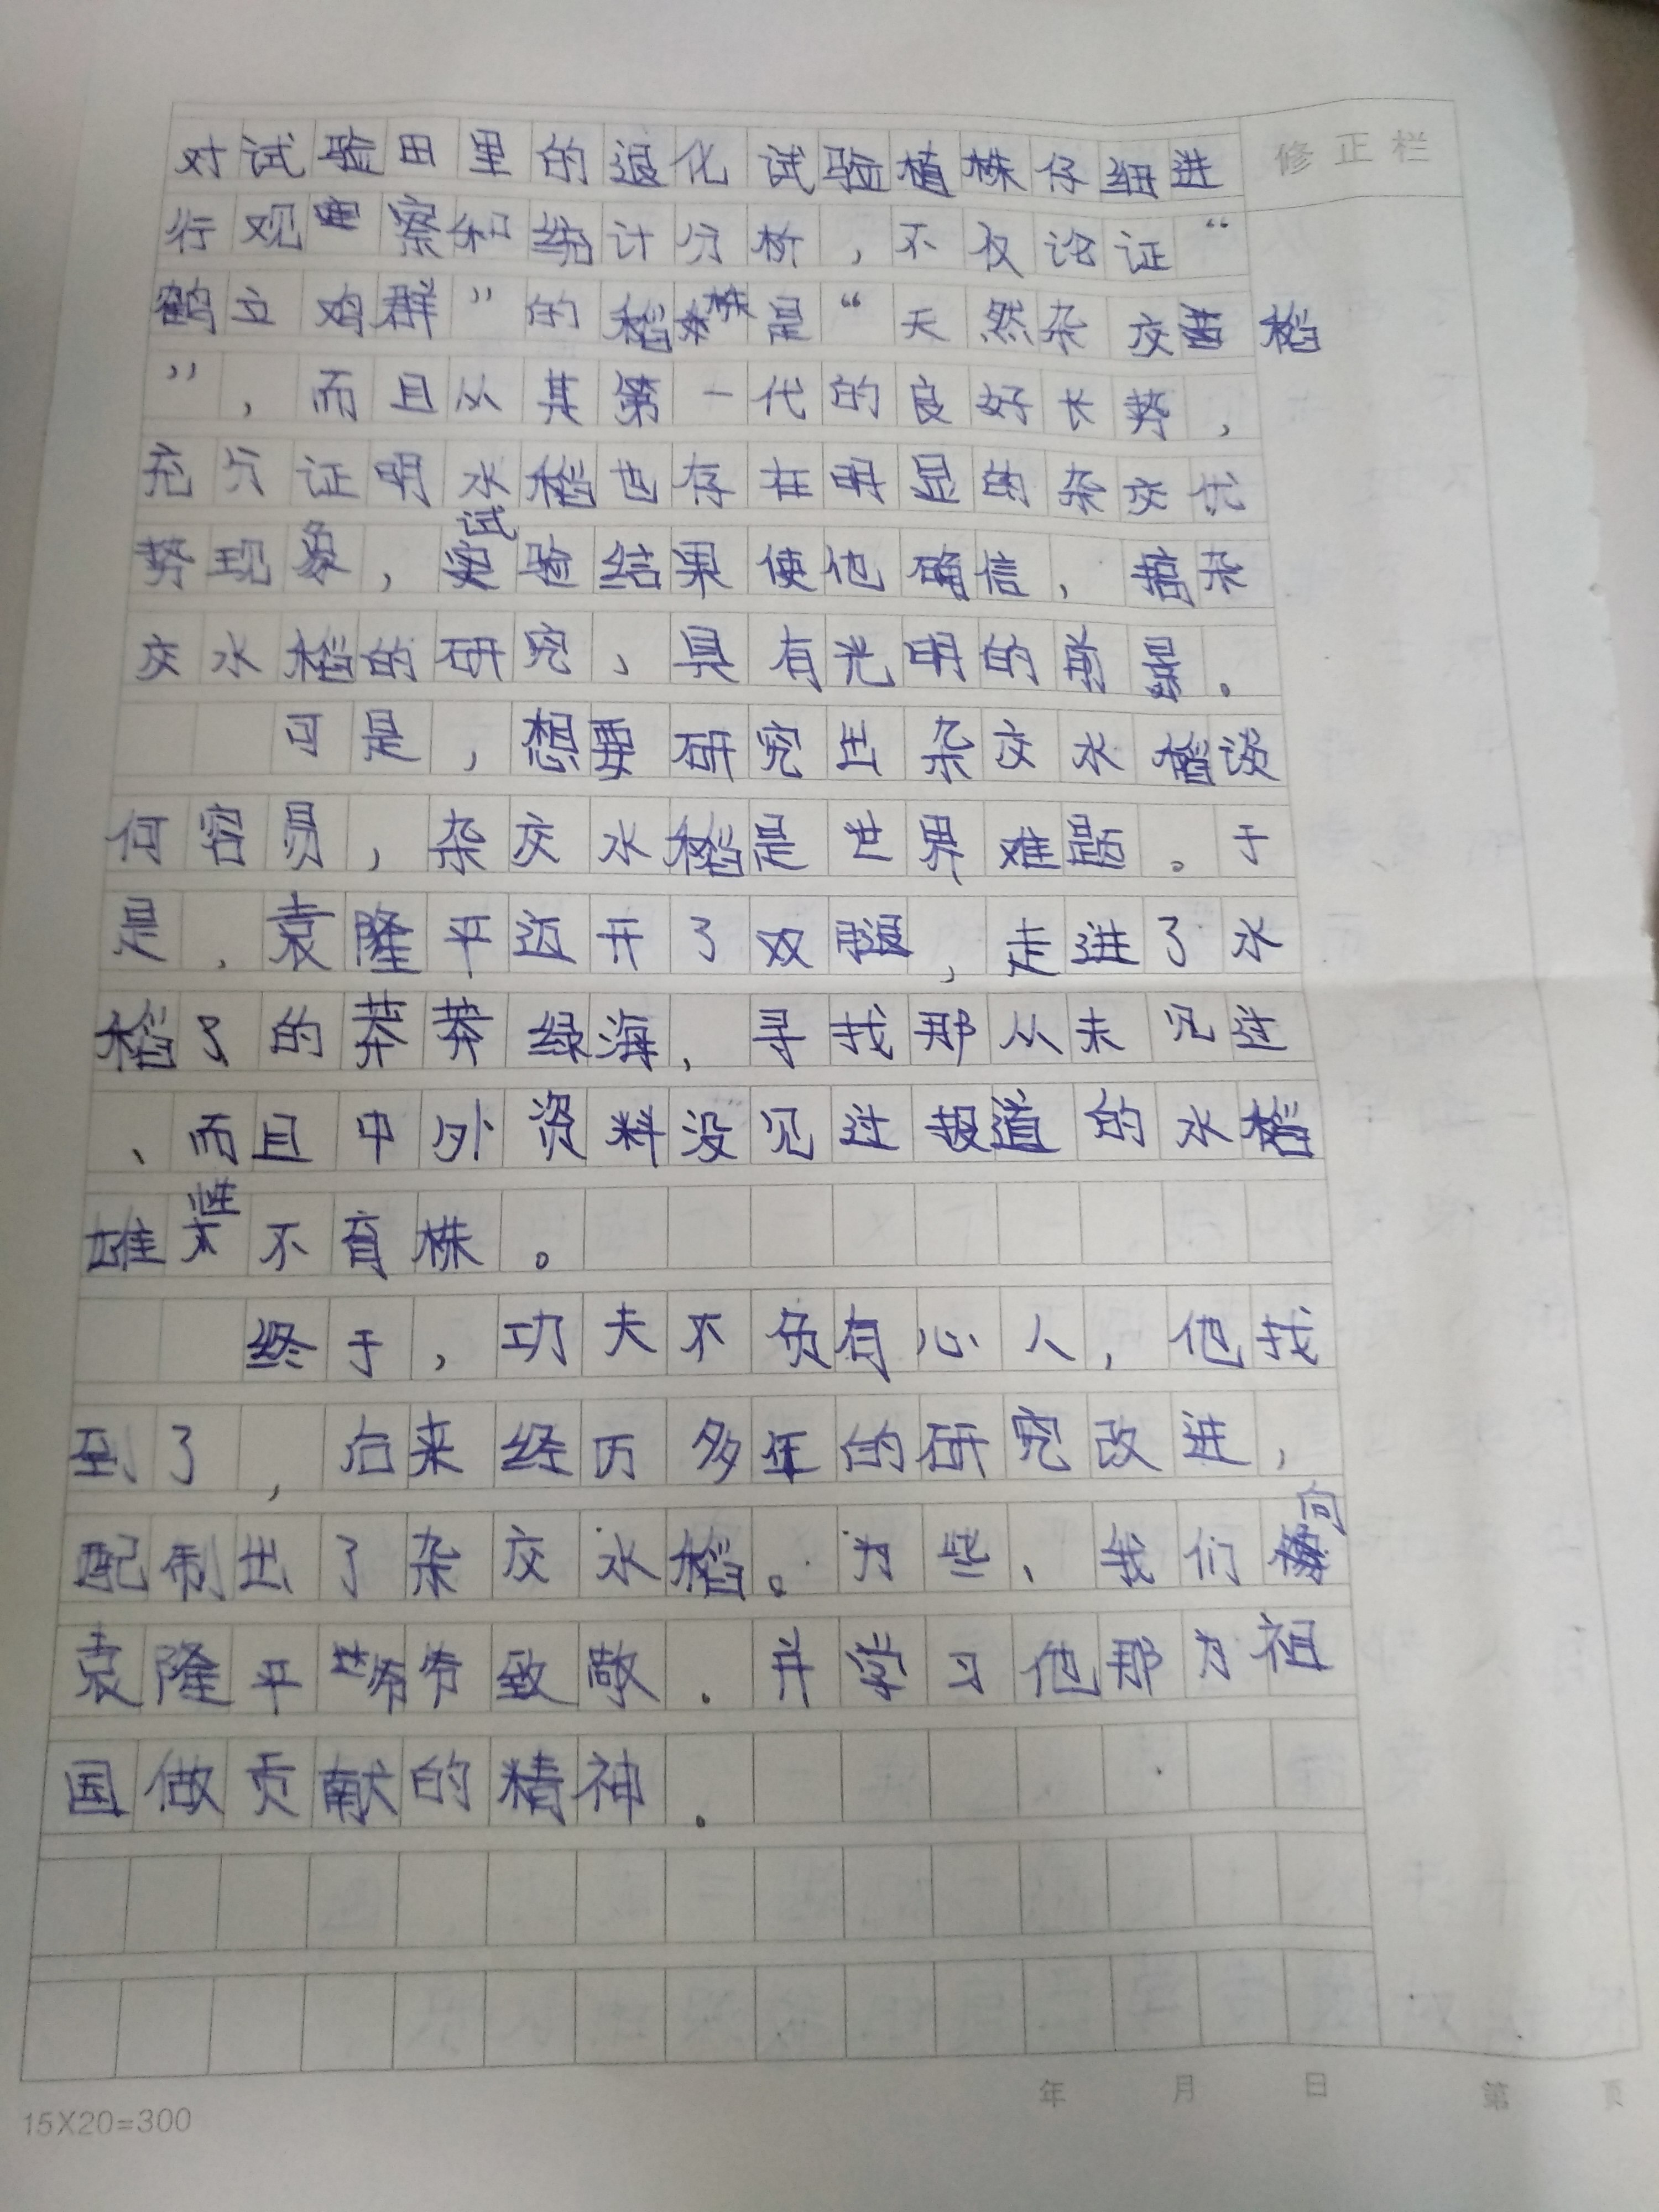 修正栏
对试验田里的退化试验植株仔细进
行观察和统计分析，不仅论证“
鹤立鸡群”的稻株是“天然杂交稻
”，而且从其第一代的良好长势，
充分证明水稻也存在明显的杂交优
势现象，试验结果使他确信，搞杂
交水稻的研究，具有光明的前景。
可是，想要研究出杂交水稻谈
何容易，杂交水稻是世界难题。于
是，袁隆平迈开了双腿，走进了水
稻了的莽莽绿海，寻找那从未见过
、而且中外资料没见过报道的水稻
雄性不育株。
终于，功夫不负有心人，他找
到了，后来经历多年的研究改进，
配制出了杂交水稻。为些、我们向
袁隆平爷爷致敬．并学习他那为祖
国做贡献的精神．
15X20=300
年 月 日 第 页